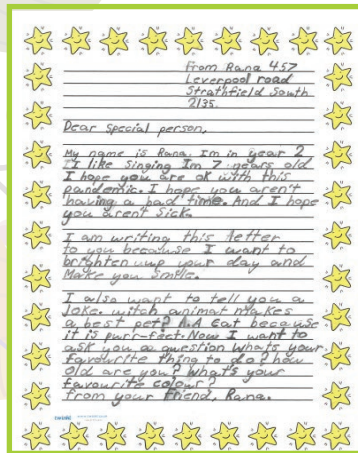 From Rana 457
Leverpool road
Strathfield South
2135.
Dear Special person,
My name is Rana. Im in year 2
I like singing Im 7 years old
I hope you are ok with this
pandemic. I hope you aren't
having a bad time. And I hope
you arent sick.
I am writing this letter
to you because I want to
brighten uup your day and
Make you smile.
I also want to tell you a
Joke. witch animat makes
a best pet? A.A cat because
it is purr-fect. Now I want to
ask you a question whats your
favourite thing to do? how
old are you? what's your
favourite colour?
from your friend, Rana.
twinkl